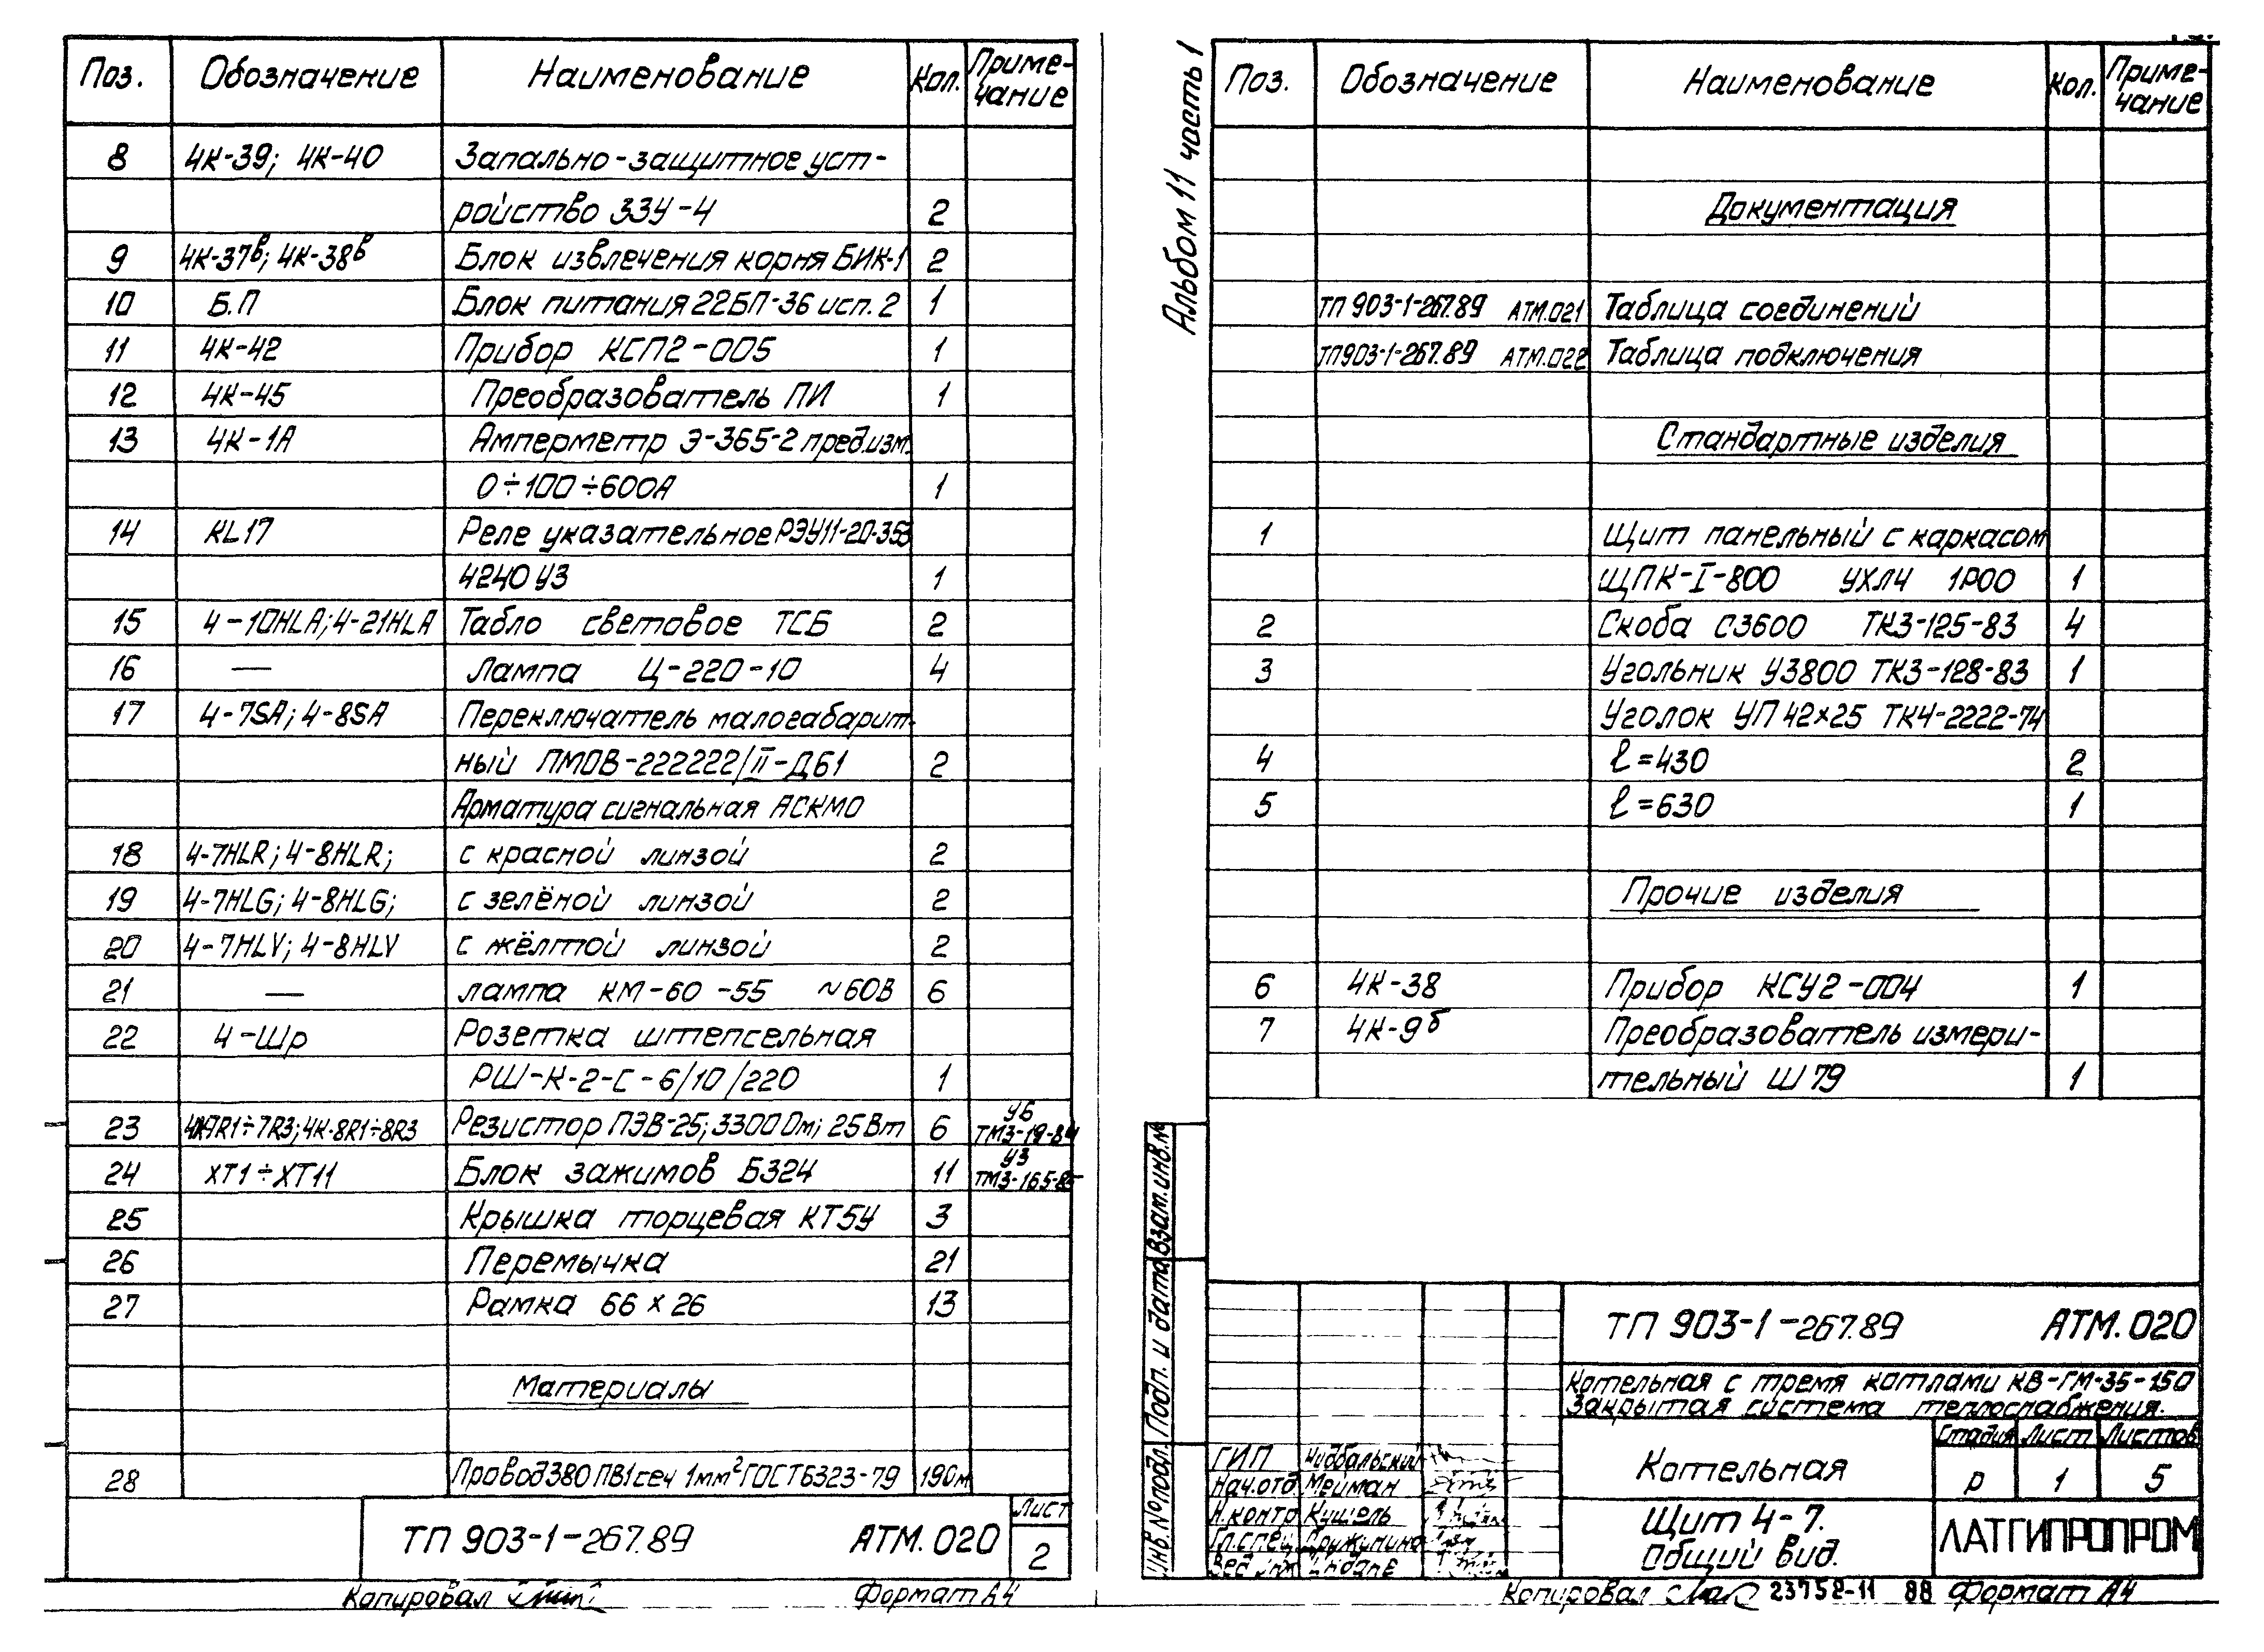 Поз. Обозначение Наименование Кол. Приме-
чание
8 4К-39; 4К-40 Запально-защитное уст-
ройство ЗЗУ-4 2
9 4К-37в; 4К-38в Блок извлечения корня БИК-1 2
10 Б.П Блок питания 22БП-36 исп. 2 1
11 4К-42 Прибор КСП2-005 1
12 4К-45 Преобразователь ПИ 1
13 4К-1А Амперметр Э-365-2 пред.изм.
0÷100÷600А 1
14 KL17 Реле указательное РЭУ11-20-353
4240 У3 1
15 4-10HLA; 4-21HLA Табло световое ТСБ 2
16 — Лампа Ц-220-10 4
17 4-7SA; 4-8SA Переключатель малогабарит-
ный ПМОВ-222222/II-Д61 2
Арматура сигнальная АСКМО
18 4-7HLR; 4-8HLR; с красной линзой 2
19 4-7HLG; 4-8HLG; с зелёной линзой 2
20 4-7HLV; 4-8HLV с жёлтой линзой 2
21 — лампа КМ-60-55 ~60В 6
22 4-Шр Розетка штепсельная
РШ-К-2-С-6/10/220 1
23 4К-7R1÷7R3; 4К-8R1÷8R3 Резистор ПЭВ-25; 3300 Ом; 25 Вт 6 У6 ТМ3-19-84
24 ХТ1÷ХТ11 Блок зажимов БЗ24 11 У3 ТМ3-165-85
25 Крышка торцевая КТ5У 3
26 Перемычка 21
27 Рамка 66х26 13
Материалы
28 Провод 380 ПВ1 сеч 1мм² ГОСТ6323-79 190м
ТП 903-1-267.89 АТМ.020 Лист
2
Копировал Формат А4
Альбом 11 часть 1
Поз. Обозначение Наименование Кол. Приме-
чание
Документация
ТП 903-1-267.89 АТМ.021 Таблица соединений
ТП903-1-267.89 АТМ.022 Таблица подключения
Стандартные изделия
1 Щит панельный с каркасом
ЩПК-I-800 УХЛ4 1Р00 1
2 Скоба С3600 ТК3-125-83 4
3 Угольник У3800 ТК3-128-83 1
Уголок УП 42х25 ТК4-2222-74
4 ℓ=430 2
5 ℓ=630 1
Прочие изделия
6 4К-38 Прибор КСУ2-004 1
7 4К-9б Преобразователь измери-
тельный Ш79 1
Инв.№подл. Подп. и дата Взам.инв.№
ТП 903-1-267.89 АТМ.020
Котельная с тремя котлами КВ-ГМ-35-150
Закрытая система теплоснабжения.
Котельная
Стадия Лист Листов
Р 1 5
ГИП
Нач.отд. Мейман
Н.контр Кушель
Гл.спец. Дружинина
Вед.инж.
Щит 4-7.
Общий вид.
ЛАТГИПРОПРОМ
Копировал 23752-11 88 Формат А4